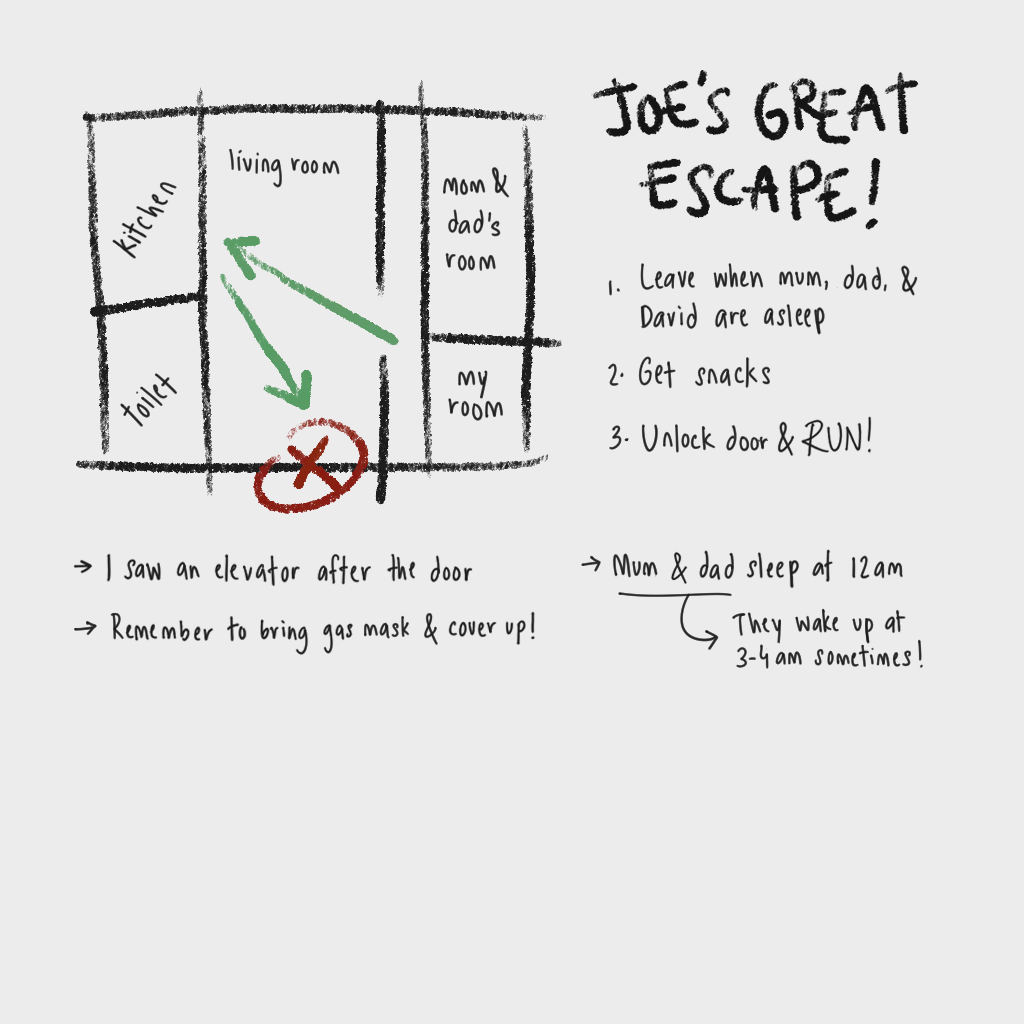 JOE'S GREAT
ESCAPE!
living room
kitchen
mom &
dad's
room
toilet
my
room
1. Leave when mum, dad, &
David are asleep
2. Get snacks
3. Unlock door & RUN!
→ I saw an elevator after the door
→ Remember to bring gas mask & cover up!
→ Mum & dad sleep at 12am
They wake up at
3-4am sometimes!